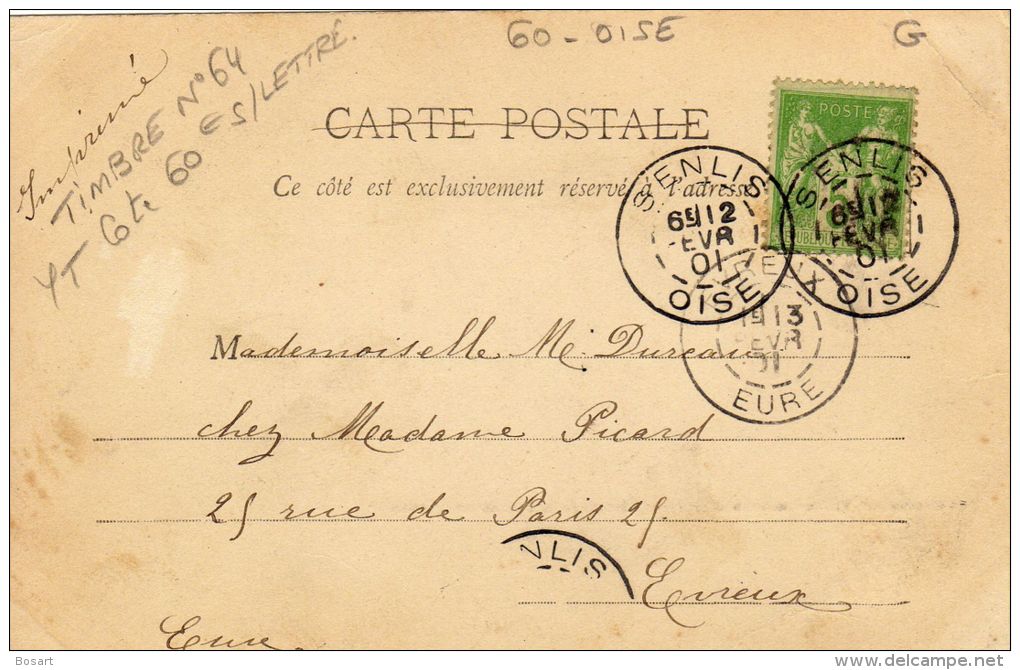 60 - OISE
G
Imprimé
TIMBRE N° 64
YT Cote 60 ES/LETTRE.
CARTE POSTALE
Ce côté est exclusivement réservé à l'adresse
POSTE
SENLIS
6E 12
FEVR
01
OISE
SENLIS
6E 12
FEVR
01
OISE
EVREUX
1E 13
FEVR
01
EURE
Mademoiselle M.
chez Madame Picard
25 rue de Paris 25.
NLIS
Evreux
Eure.
Bosart
delcampe.net